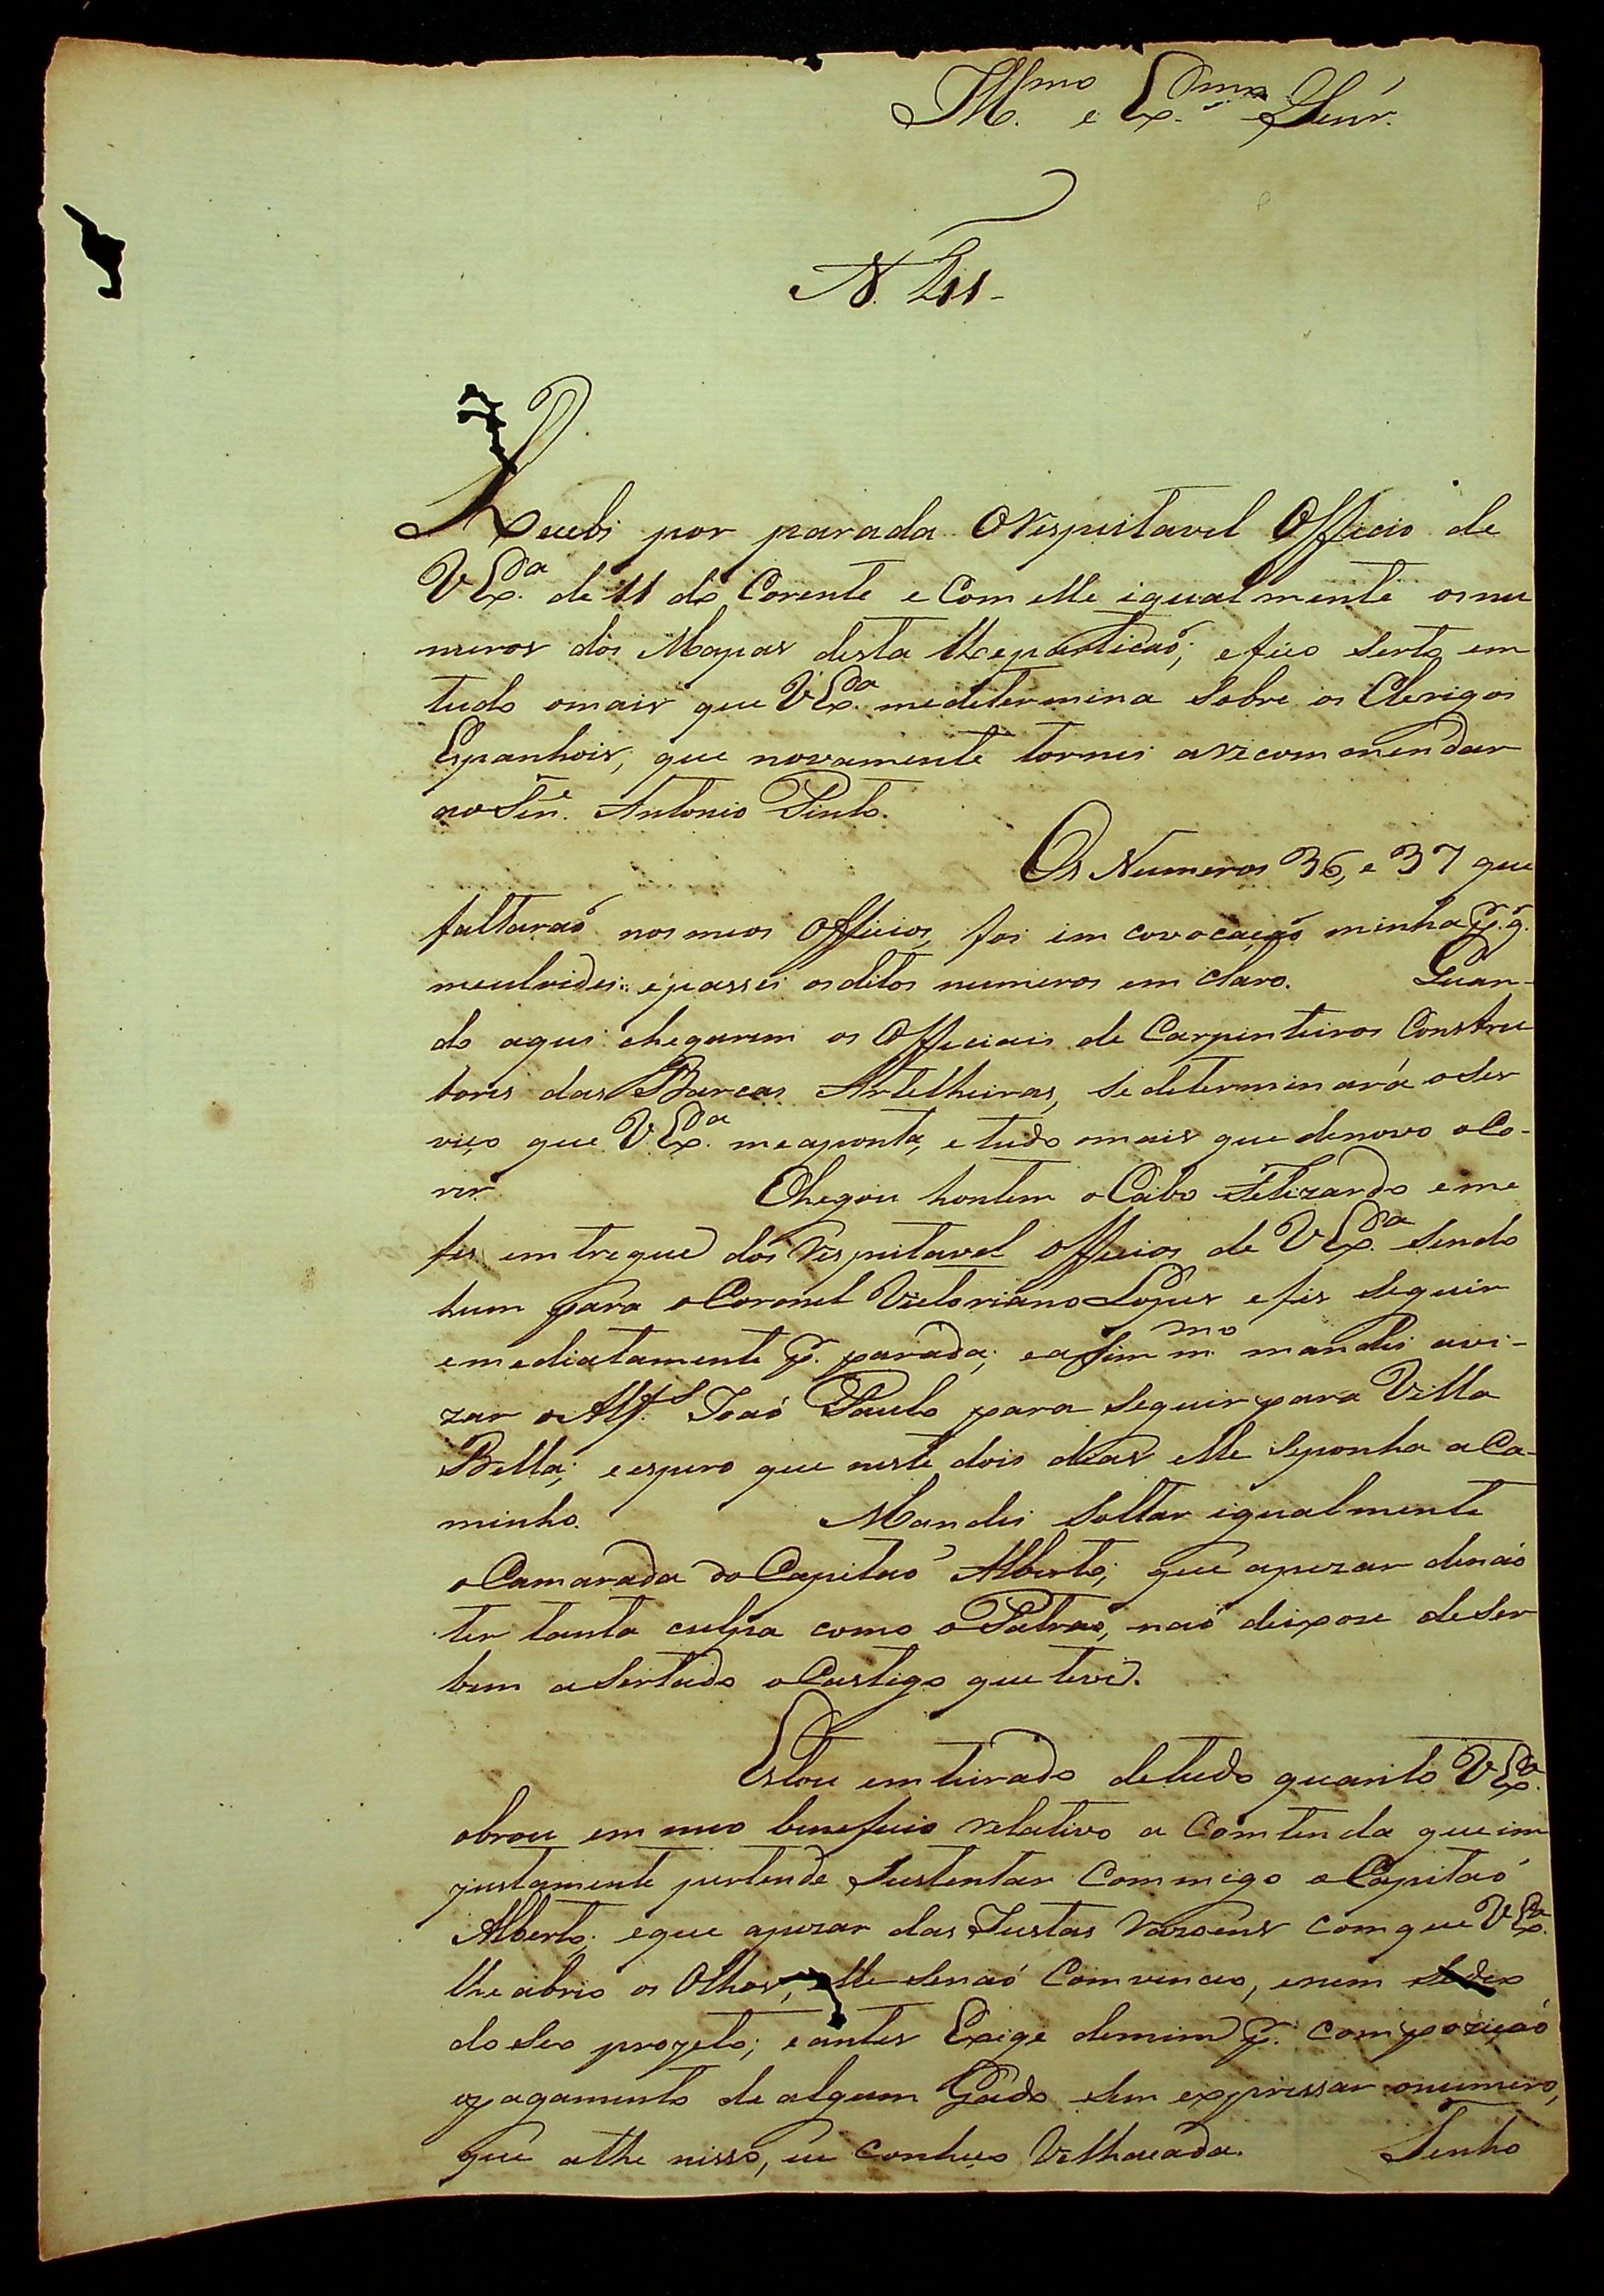 Ill.mo e Ex.mo Senr.
N. 211 -
Recebi por parada O Respeitavel Officio de
V Ex.cia de 11 do Corente e Com elle igualmente os nu
meros dos Mapas desta Reparticaó; e fico Serto em
tudo o mais que V Ex.cia me determina Sobre os Clerigos
Espanhois, que novamente tornei a recommendar
ao Senr. Antonio Pinto.
Os Numeros 36, e 37 que
faltaraó nos meos Officios, foi im covocaçaó minha p. q.
me ulvidei e passei os ditos numeros em claro. Quan-
do aqui chegarem os Officiais de Carpinteiros Constru
tores das Barcas Artelheiras, Se determinará o Ser
viço que V. Ex.cia me aponta, e tudo o mais que de novo o Co-
rer. Chegou hontem o Cabo Felizardo e me
fes emtregue dos Respeitavel Officios de V Ex.cia Sendo
hum para o Coronel Victoriano Lopes e fis Seguir
emediatamente p. parada; e assim m.mo mandei avi-
zar o Alf.s Joaó Paulo para Seguir para Villa
Bella; e espero que neste dois dias elle Se ponha a Ca-
minho. Mandei Soltar igualmente
o Camarada do Capitaó Alberto; que apezar de naó
ter tanta culpa como o Patraó, naó deixou de Ser
bem a Sertado o Castigo que teve.
Estou emteirado de tudo quanto V Ex.cia
obrou em meo beneficio relativo a Comtenda que im
justamente pertende Sustentar Commigo o Capitaó
Alberto; e que apezar das Justas Razoens com que V Ex.cia
lhe abrio os Olhos, elle Se naó Comvenceo, e nem
do Seo projeto; e antes Exige de mim p. compoziçaó
o pagamento de algum Gado Sem expressar o numero,
que athe nisso, eu conheço Velhacada. Tenho